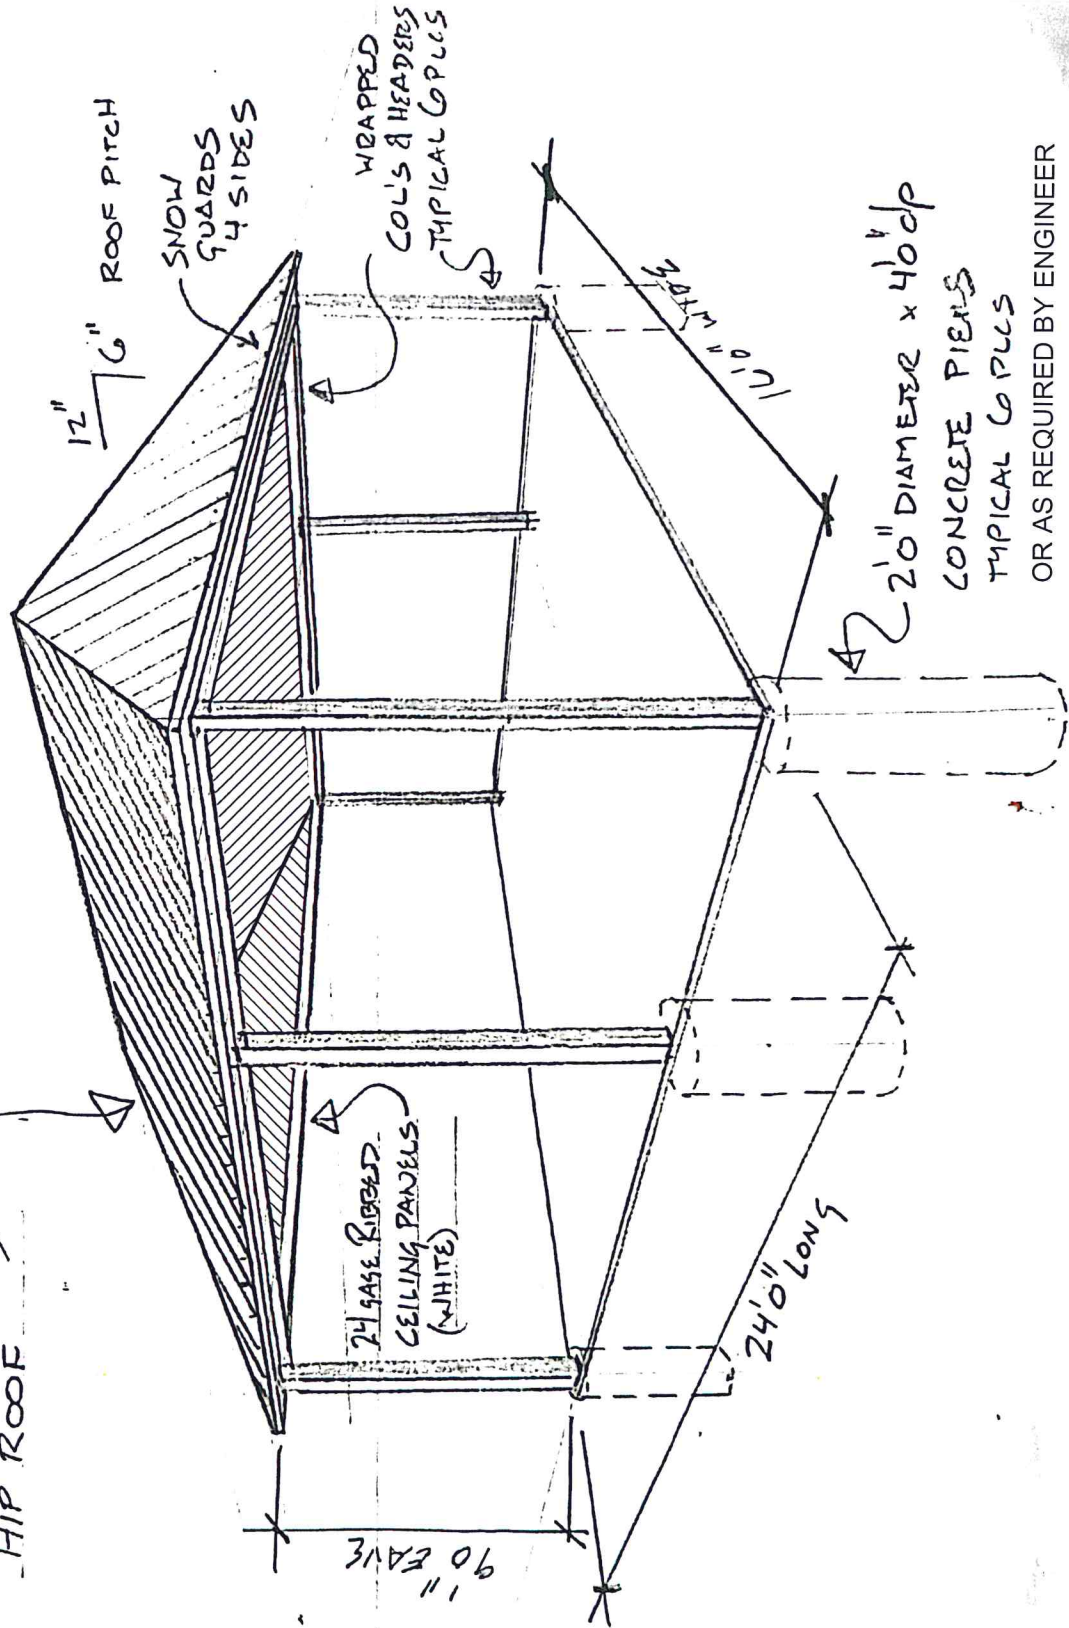 HIP ROOF
12"
6"
ROOF PITCH
SNOW
GUARDS
4 SIDES
WRAPPED
COL'S & HEADERS
TYPICAL 6 PLCS
24 GAGE RIBBED
CEILING PANELS
(WHITE)
9'0" EAVE
24'0" LONG
16'0" WIDE
2'0" DIAMETER x 4'0" dp
CONCRETE PIERS
TYPICAL 6 PLCS
OR AS REQUIRED BY ENGINEER